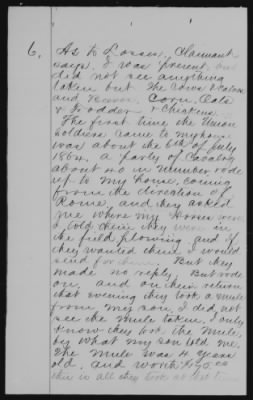 6. As to Losses, Claimant
says, I was present, and
did not see anything
taken but the Cows & Calves
and Horses, Corn, Oats
& Fodder & Chickens.
The first time the Union
Soldiers came to my house
was about the 6th of July
1864, a party of Cavalry
about 40 in number rode
up to my house, coming
from the direction of
Rome, and they asked
me where my Horses were,
I told them they were in
the field plowing and if
they wanted them I would
send for them. But they
made no reply, But rode
on, and on their return
that evening they took a mule
from my son, I did not
see the mule taken, I only
know they took the Mule,
by what my son told me,
The Mule was 4 years
old, and worth
this is all they took at that